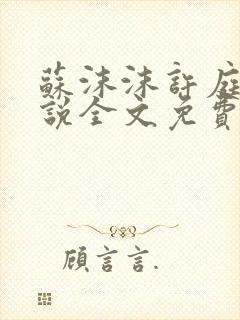 蘇沫沫許庭
說全文免費
顧言言.